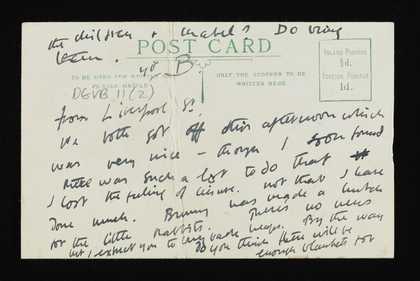 the children & Mabel? Do bring
them. yr B
POST CARD
TO BE USED FOR
ONLY THE ADDRESS TO BE
WRITTEN HERE
INLAND POSTAGE
½d.
FOREIGN POSTAGE
1d.
DGVB 11(2)
from Liverpool St.
We both got off this afternoon which
was very nice – though I soon found
there was such a lot to do that
I lost the feeling of leisure. not that I have
done much. Bunny has made a hutch
for the little rabbits. There's no news
but I expect you to be back. By the way
Do you think there will be
enough blankets for